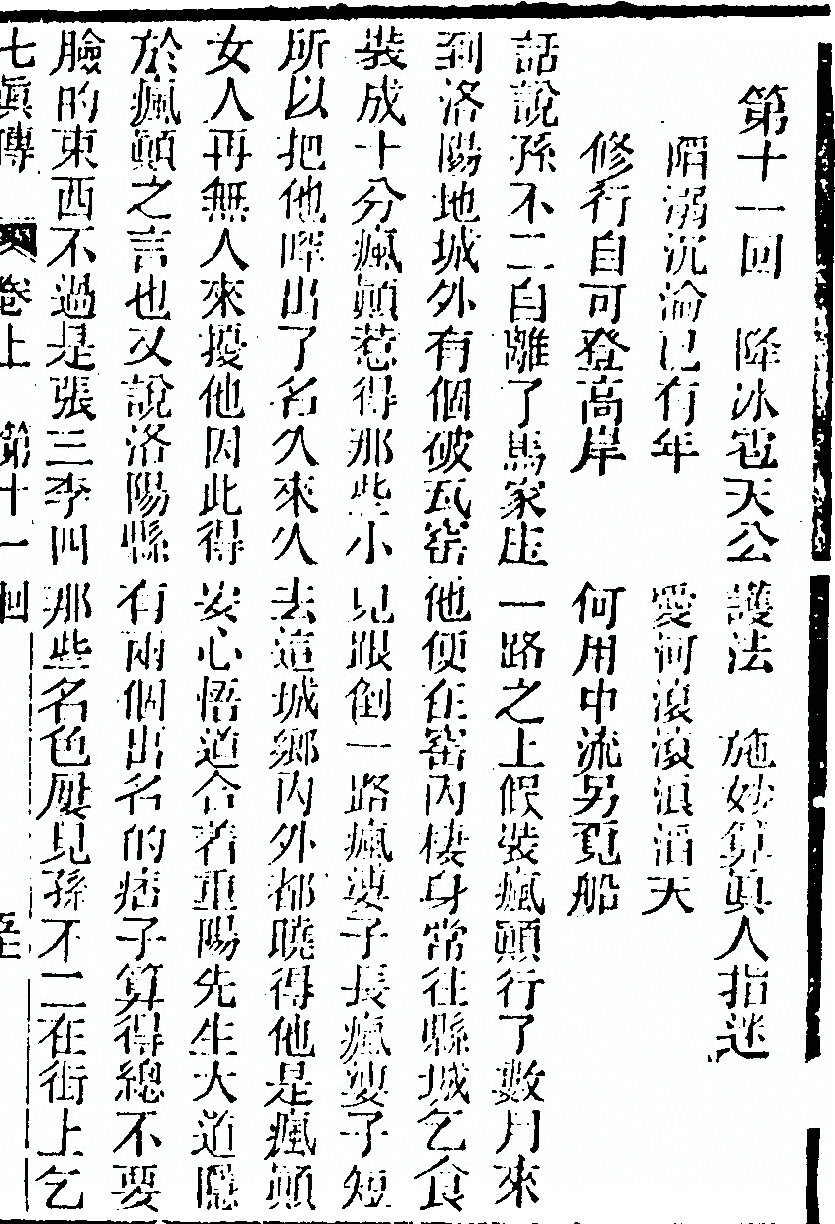 第十一回 降冰雹天公護法 施妙算眞人指迷
陷溺沉淪已有年 愛河滾滾浪滔天
修行自可登高岸 何用中流另覓船
話說孫不二自離了馬家庄一路之上假裝瘋顚行了數月來
到洛陽地城外有個破瓦窑他便在窑內棲身常往縣城乞食
裝成十分瘋顚惹得那些小兒跟倒一路瘋婆子長瘋婆子短
所以把他喊出了名久來久去這城鄉內外都曉得他是瘋顚
女人再無人來擾他因此得安心悟道合着重陽先生大道隱
於瘋顚之言也又說洛陽縣有兩個出名的痞子算得總不要
臉的東西不過是張三李四那些名色屢見孫不二在街上乞
七眞傳 卷上 第十一回